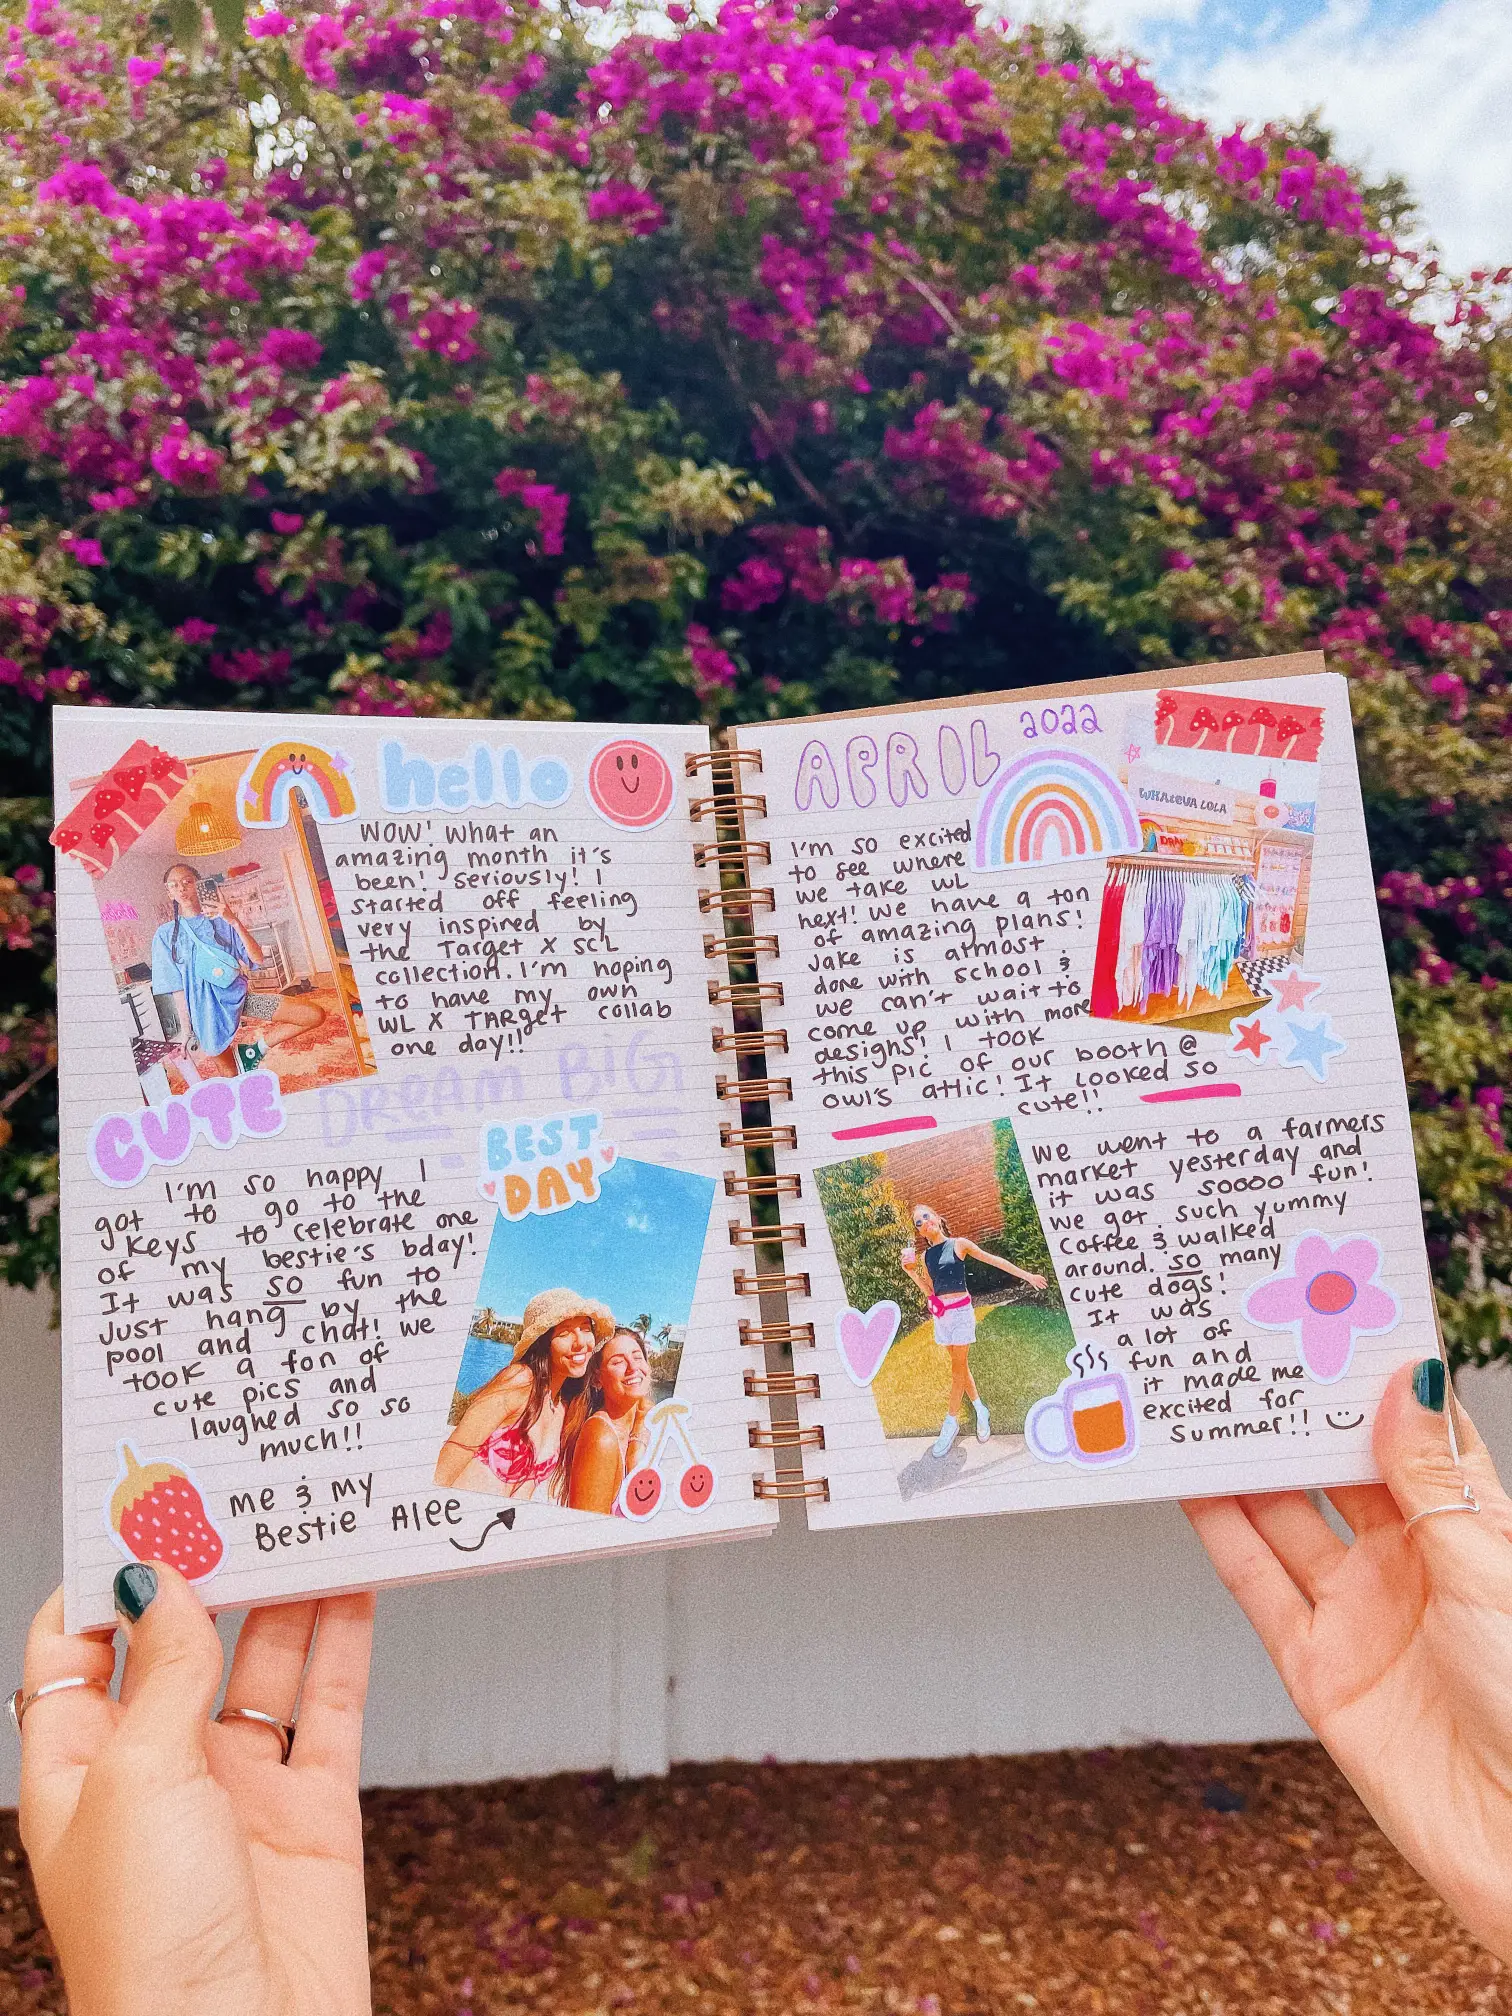 hello
WOW! What an
amazing month it's
been! Seriously! I
started off feeling
very inspired by
the Target X SCL
collection. I'm hoping
to have my own
WL X TARget collab
one day!!
DREAM BIG
CUTE
BEST
DAY
I'm so happy I
got to go to the
Keys to celebrate one
of my bestie's bday!
It was so fun to
Just hang by the
pool and chat! We
took a ton of
cute pics and
laughed so so
much!!
me & my
Bestie Alee
APRIL 2022
WHALEVA LOLA
I'm so excited
to see where
we take WL
next! We have a ton
of amazing plans!
Jake is almost
done with school &
we can't wait to
come up with more
designs! I took
this pic of our booth @
owl's attic! It looked so
cute!!
We went to a farmers
market yesterday and
it was soooo fun!
We got such yummy
coffee & walked
around. so many
cute dogs!
It was
a lot of
fun and
it made me
excited for
summer!!